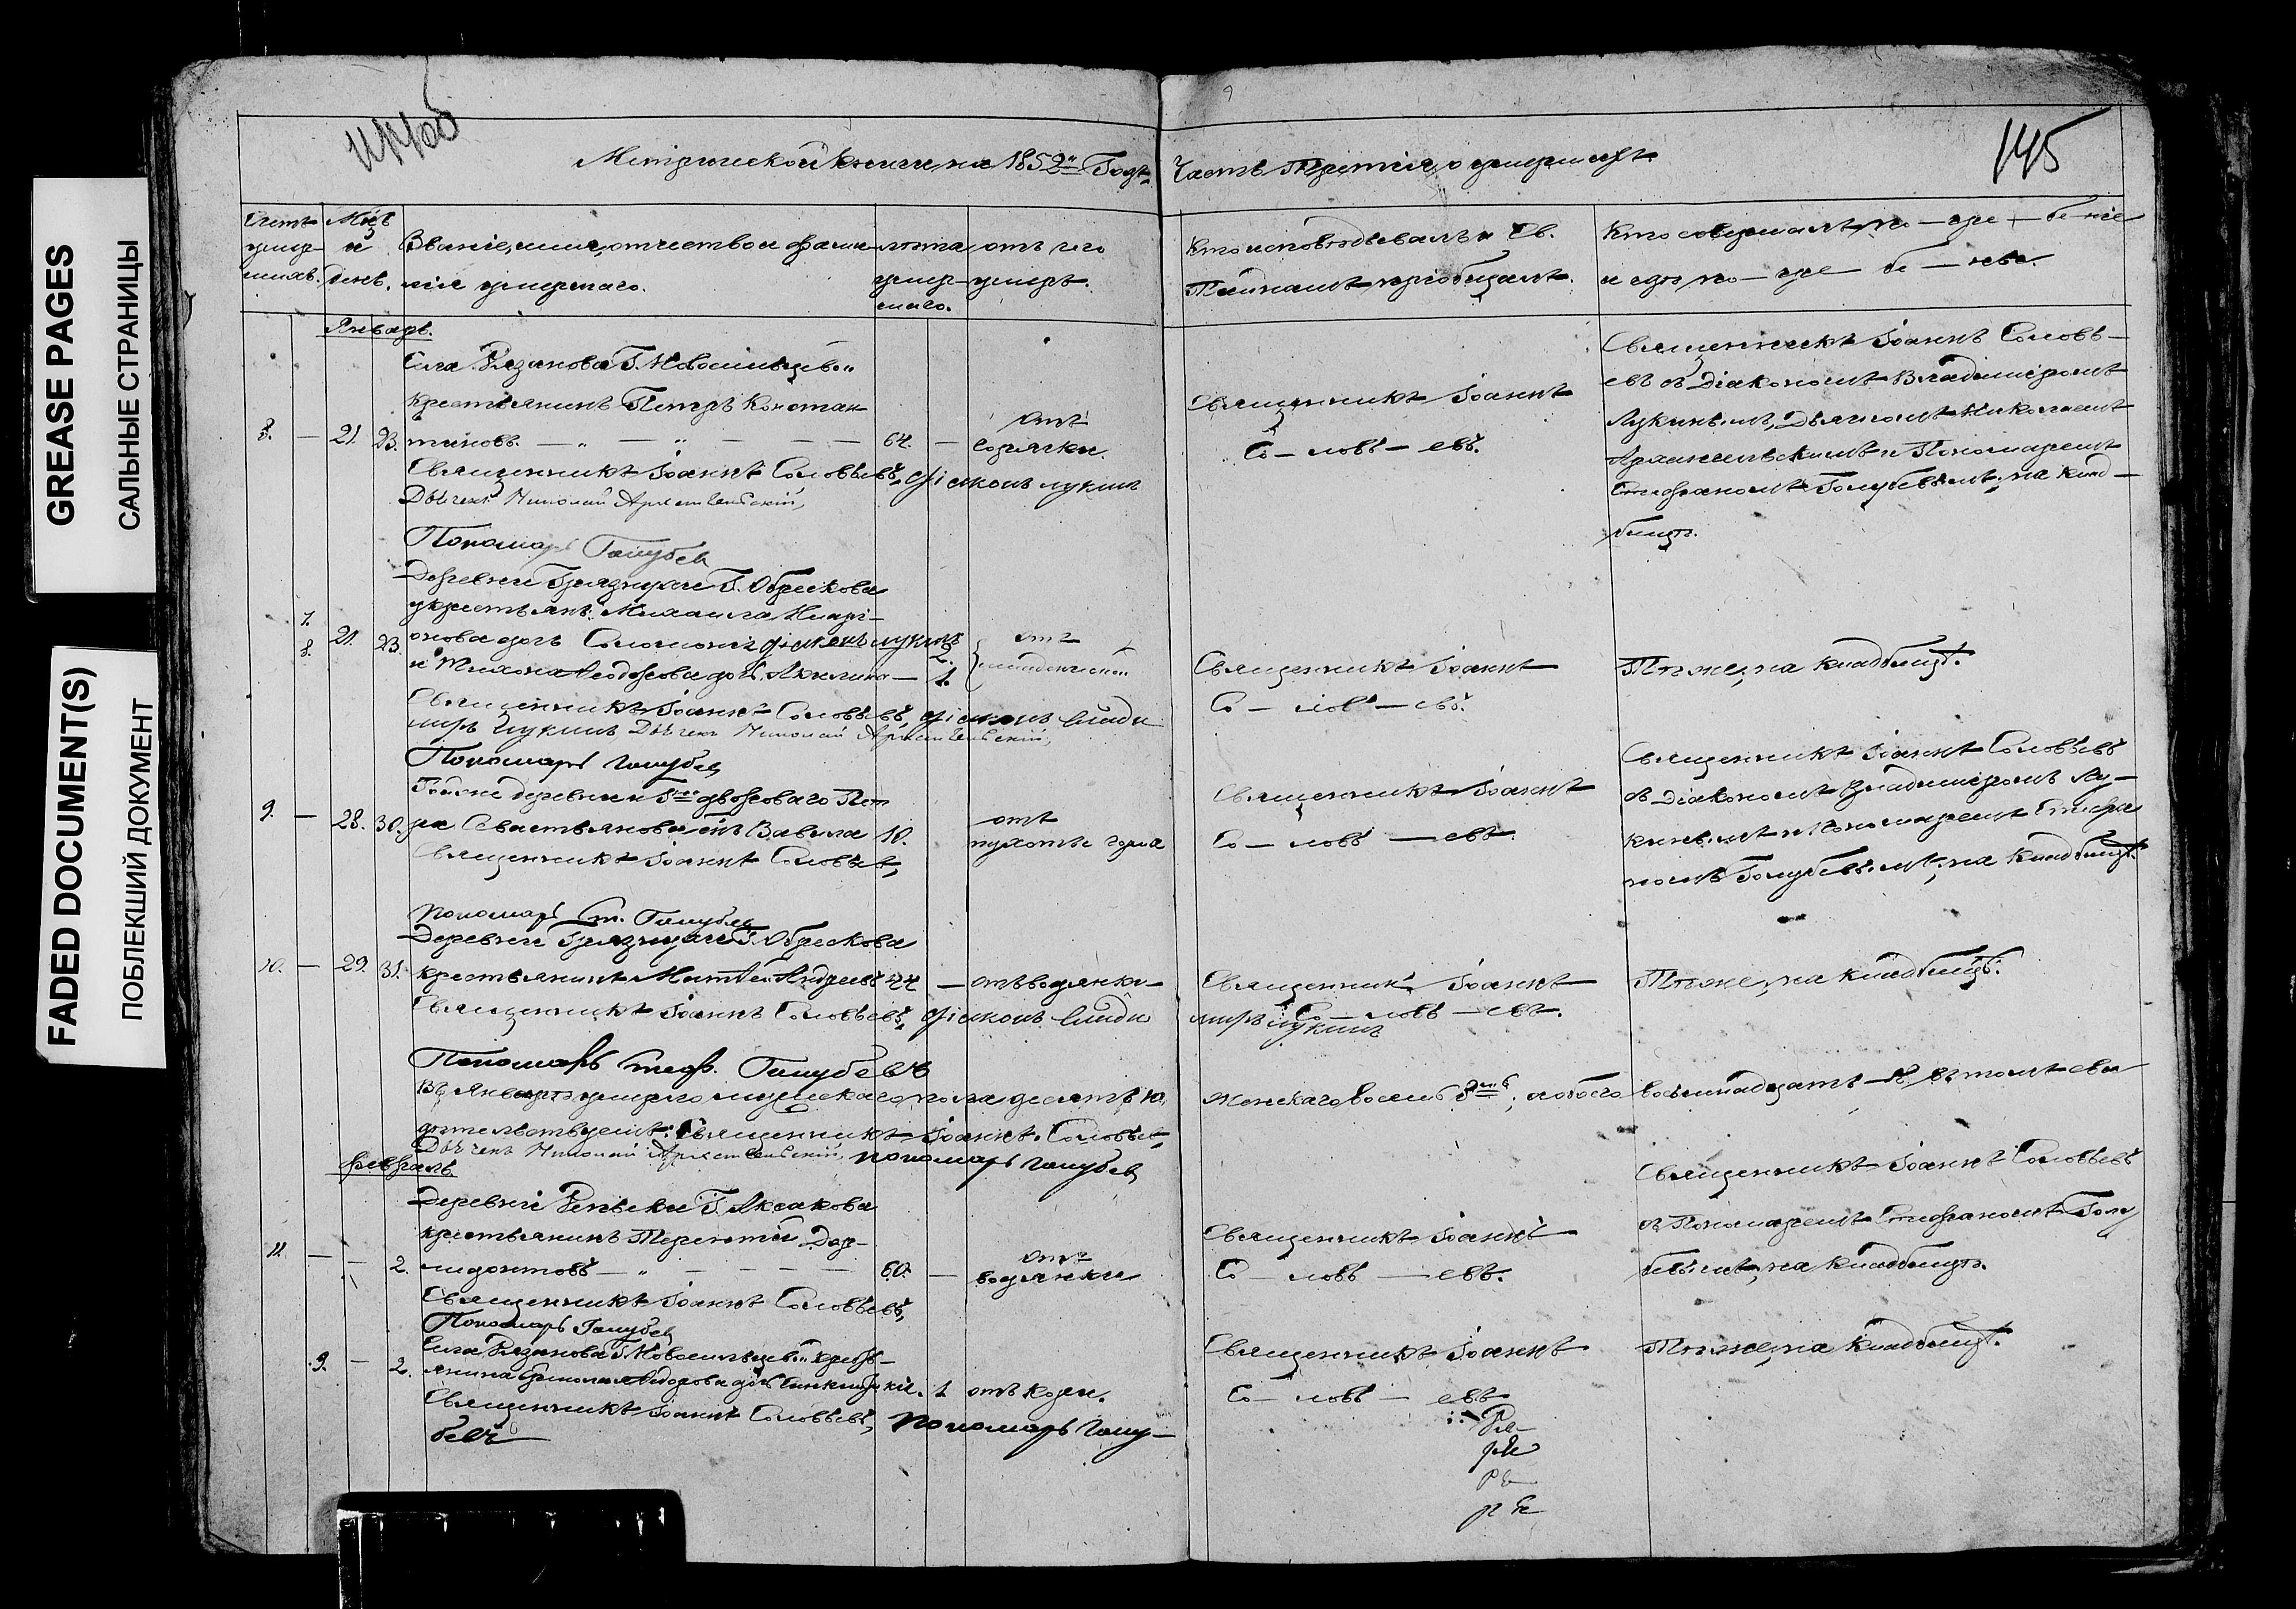 GREASE PAGES
САЛЬНЫЕ СТРАНИЦЫ
FADED DOCUMENT(S)
ПОБЛЕКШИЙ ДОКУМЕНТ
145
Метрической книги на 1852й Годъ
Часть Третія, о умершихъ
Счетъ умер- шихъ.
Мцъ и день.
Званіе, имя, отчество и фами- лія умершаго.
лѣта умер- шаго.
отъ чего умеръ.
Кто исповѣдывалъ и Св. Тайнамъ пріобщалъ.
Кто совершалъ по-гре-бе-ніе и гдѣ по-гре-бе-ны.
Январь.
Села Рязанова Г. Новосильцев..
крестьянинъ Петръ Констан-
8. — 21. 23. тиновъ. — 64. — отъ горячки
Священникъ Іоаннъ Соловьевъ, Діаконъ Лукинъ
Дьячекъ Николай Архангельскій,
Пономарь Голубев
Священникъ Іоаннъ
Со-ловь-евъ.
Священникъ Іоаннъ Соловь-
евъ съ Діакономъ Владиміромъ
Лукинымъ, Дьячкомъ Николаемъ
Архангельскимъ и Пономаремъ
Стефаномъ Голубевымъ, на клад-
бищѣ.
Деревни Грязнухи Г. Обрескова
у крестьянъ: Михаила
7. 8. 21. 23. дочь Соломонія Діаконъ Лукинъ 2.
и Тихона Ѳеодорова дочь Акилина — 1.
отъ младенческой
Священникъ Іоаннъ Соловьевъ, Діаконъ Влади
миръ Лукинъ Дьячекъ Николай Архангельскій,
Пономарь Голубев
Священникъ Іоаннъ
Со-ловь-евъ.
Тѣже, на кладбищѣ.
деревни двороваго Пет
9. — 28. 30. ра Севастьянова сынъ Вавила 10. отъ горла
Священникъ Іоаннъ Соловьев,
Пономарь Ст. Голубев
Священникъ Іоаннъ
Со-ловь-евъ.
Священникъ Іоаннъ Соловьевъ
съ Діакономъ Владиміромъ Лу-
кинымъ и Пономаремъ Стефа
номъ Голубевымъ, на кладбищѣ.
Деревни Грязнухи Г. Обрескова
10. — 29. 31. крестьянинъ Матвѣй Андреевъ 44 — отъ водянки
Священникъ Іоаннъ Соловьевъ, Діаконъ Влади
миръ Лукинъ
Пономарь Стеф. Голубевъ
Священникъ Іоаннъ
Со-ловь-евъ.
Тѣже, на кладбищѣ.
Въ Январѣ умерло мужскаго пола десять 10,
женскаго восемь 8мь; а обоего восемнадцать 18 въ томъ сви
дѣтельствуемъ: Священникъ Іоаннъ Соловьев
Дьячекъ Николай Архангельскій, Пономарь Голубев
Февраль.
Деревни Репьевки Г. Аксакова
крестьянинъ Терентій Дор-
11. — — 2. медонтовъ — 60. — отъ водянки
Священникъ Іоаннъ Соловьевъ,
Пономарь Голубев
Священникъ Іоаннъ
Со-ловь-евъ.
Священникъ Іоаннъ Соловьевъ
съ Пономаремъ Стефаномъ Голу
бевымъ, на кладбищѣ.
Села Рязанова Г. Новосильцев.. кресть-
9. — 2. янина Ѳедорова дочь Синклитикія. 1 отъ кори.
Священникъ Іоаннъ Соловьевъ, Пономарь Голу-
бевъ
Священникъ Іоаннъ
Со-ловь-евъ
Тѣже, на кладбищѣ.